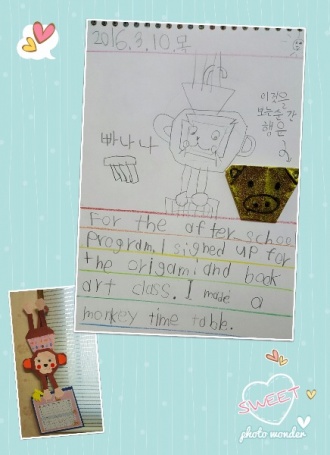 2016.3.10.목
이것을
보는순간
빠나나
For the after schoo
program. I signed up for
the origami and book
art class. I made a
monkey time table.
SWEET
photo wonder